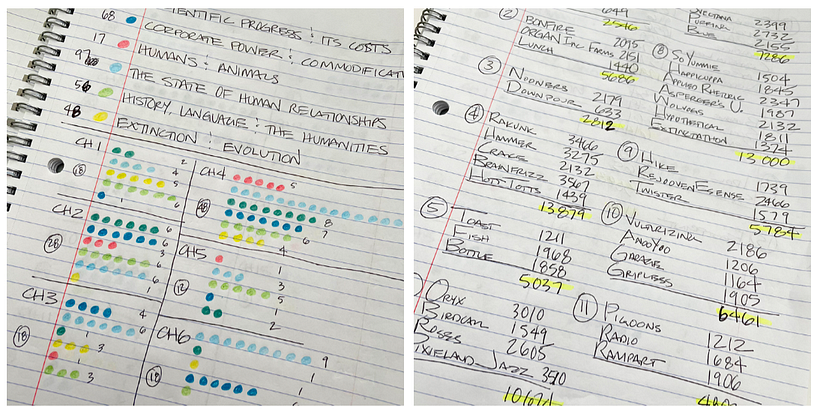 68 ENTIFIC PROGRESS : ITS COSTS
17 CORPORATE POWER : COMMODIFICAT
HUMANS : ANIMALS
56 THE STATE OF HUMAN RELATIONSHIPS
48 HISTORY, LANGUAGE : THE HUMANITIES
EXTINCTION : EVOLUTION
CH1
18
2
4
5
6
1
CH2
28
6
6
3
6
6
1
CH3
18
4
6
1
3
1
3
CH4
48
5
8
7
6
4
CH5
12
1
3
5
1
2
CH6
18
9
1
1
6
1
649
2546
2
BONFIRE 2095
ORGAN INC FARMS 2151
LUNCH 1440
5686
3
NOONERS 2179
DOWNPOUR 633
2812
4
RAKUNK 3466
HAMMER 3275
CRAKE 2132
BRAINFRIZZ 3567
HOTTOTTS 1439
13879
5
TOAST 1211
FISH 1968
BOTTLE 1858
5037
ORYX 3010
BIRDCALL 1549
ROSES 2605
IXIELAND JAZZ 3510
10674
2399
2732
BLUE 2155
7286
8
SOYUMMIE 1504
HAPPICUPPA 1845
APPLIED RHETORIC 2347
ASPERGER'S U. 1987
WOLVOGS 2132
HYPOTHETICAL 1811
EXTINCTATHON 1374
13000
9
HIKE 1739
REJOOVENESENSE 2466
TWISTER 1579
5784
10
VULTURIZING 2186
ANOOYOO 1206
GARAGE 1164
GRIPLESS 1905
6461
11
PIGOONS 1212
RADIO 1684
RAMPART 1906